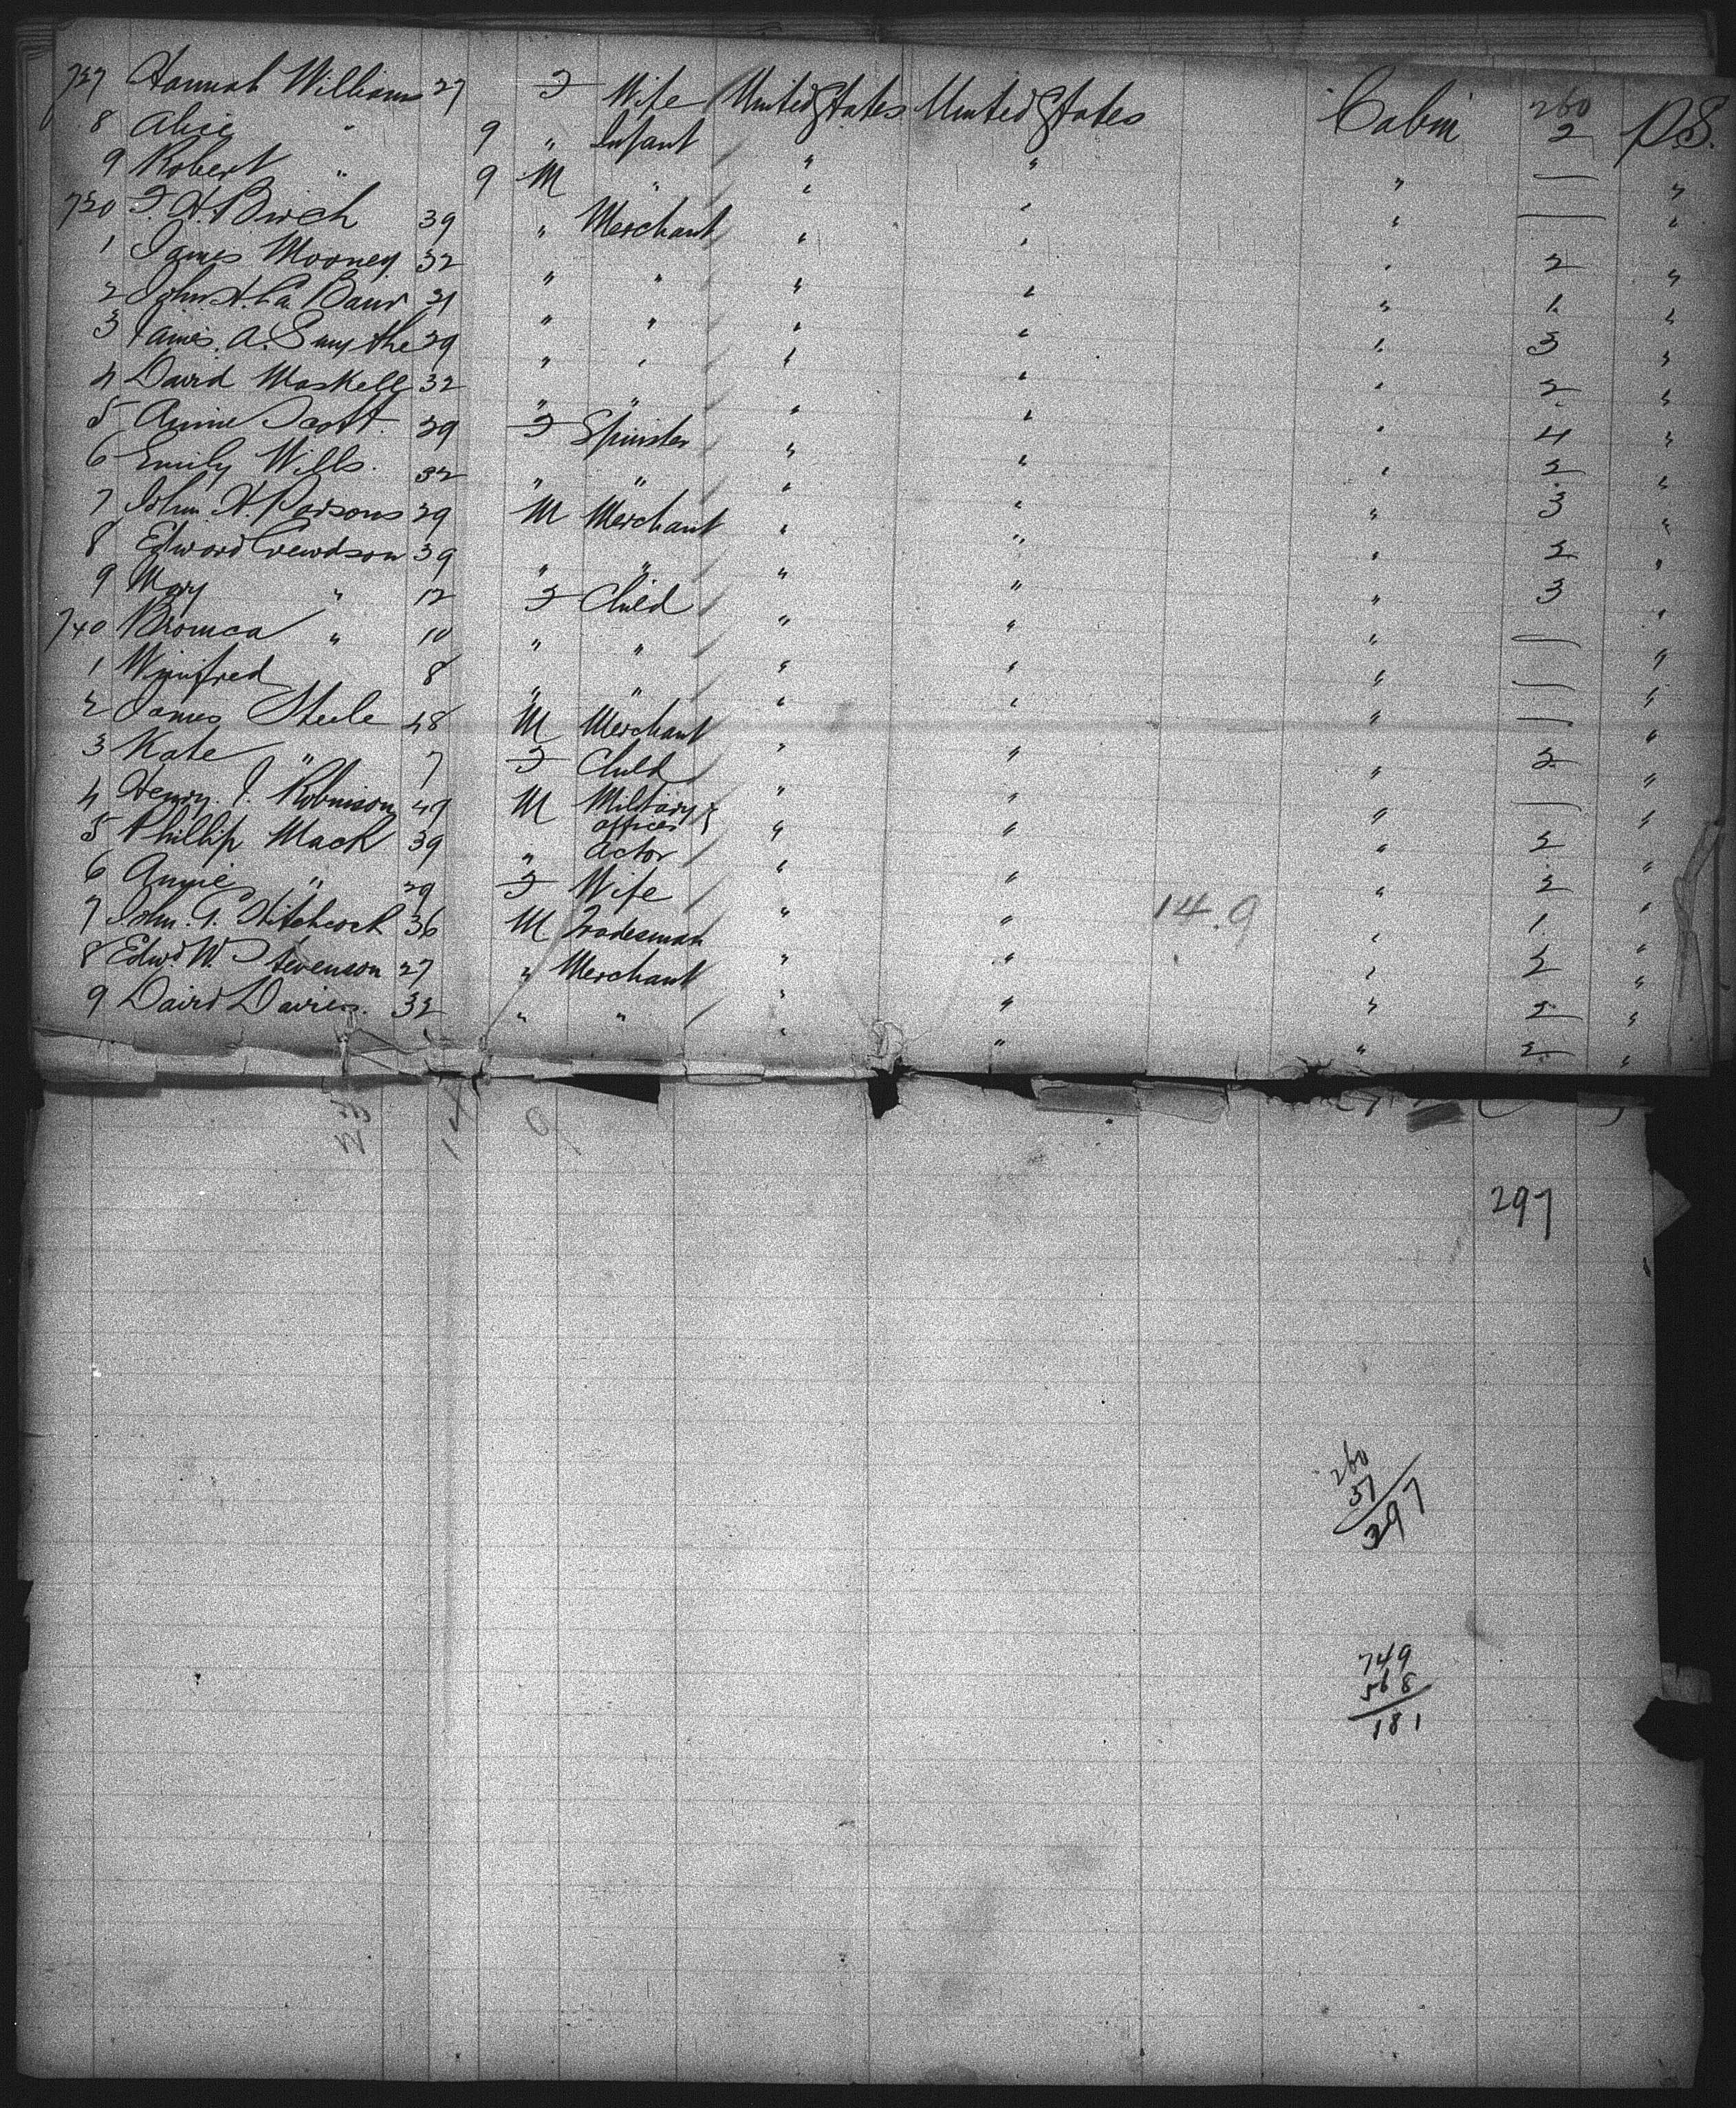 727 Hannah Williams 27 F Wife United States United States Cabin 260 2 P.S.
8 Alice " 9 " Infant " " " — "
9 Robert " 9 M " " " " — "
730 F. H. Birch 39 " Merchant " " " 2 "
1 James Mooney 32 " " " " " 1 "
2 John H. La Baur 31 " " " " " 3 "
3 James. A. Smythe 29 " " " " " 2 "
4 David Maskell 32 " " " " " 4 "
5 Annie Scott 29 F Spinster " " " 2 "
6 Emily Wills. 32 " " " " " 3 "
7 John H. Parsons 29 M Merchant " " " 2 "
8 Edward Crewdson 39 " " " " " 3 "
9 Mary " 12 F Child " " " — "
740 " 10 " " " " " — "
1 Winifred 8 " " " " " — "
2 James Steele 48 M Merchant " " " 2 "
3 Kate " 7 F Child " " " — "
4 Henry. J. Robinson 49 M Military officer " " " 2 "
5 Phillip Mack 39 " Actor " " " 2 "
6 Annie " 29 F Wife " " " 1 "
7 John. G. Hitchcock 36 M Tradesman " " 14.9 " 2 "
8 Edwd. W. Stevenson 27 " Merchant " " " 2 "
9 David Davies. 32 " " " " " 2 "
297
260
37
297
749
568
181